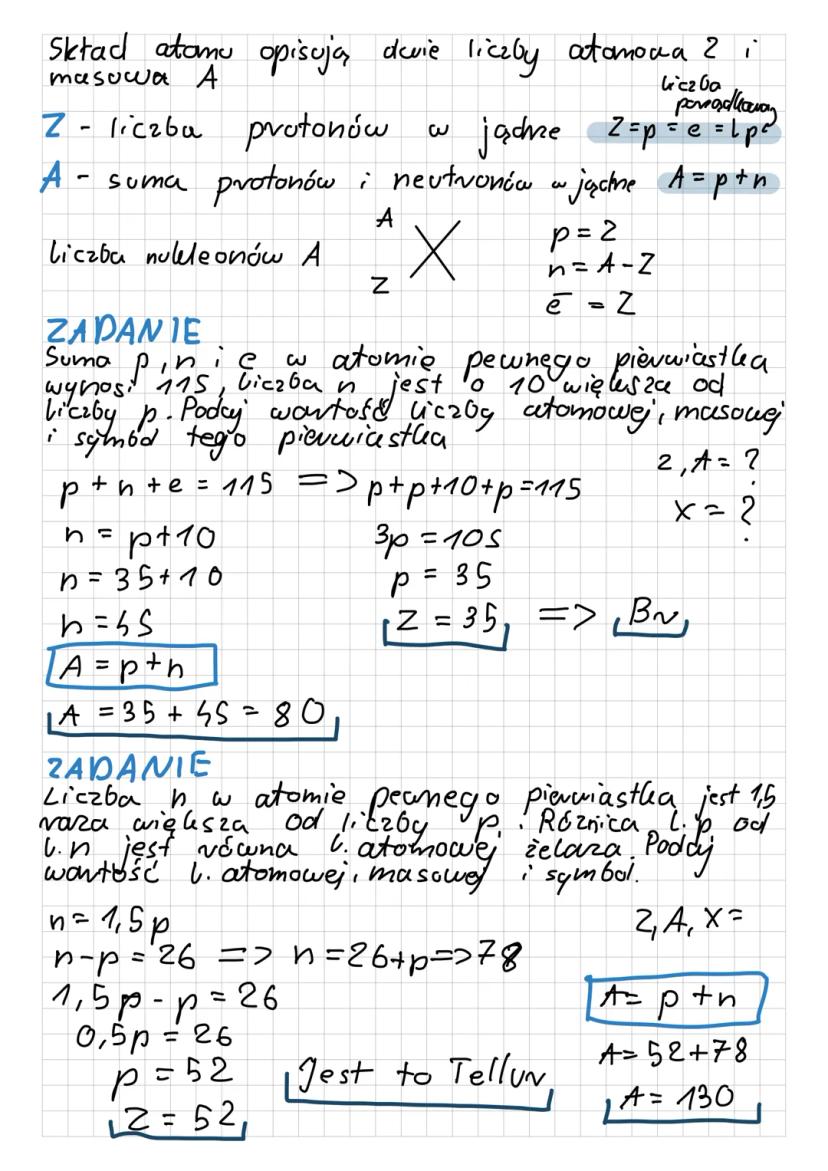 Skład atomu opisują dwie liczby atomowa Z i
masowa A
liczba
porządkowa
Z - liczba protonów w jądrze Z=p=e=Lp
A - suma protonów i neutronów w jądrze A = p+n
liczba nukleonów A
A
Z
X
p = Z
n = A-Z
e⁻ = Z
ZADANIE
Suma p, n i e w atomie pewnego pierwiastka
wynosi 115, liczba n jest o 10 większa od
liczby p. Podaj wartość liczby atomowej, masowej
i symbol tego pierwiastka
Z, A = ?
X = ?
p + n + e = 115 => p+p+10+p=115
n = p+10
3p = 105
n = 35+10
p = 35
n = 45
Z = 35 => Br
A = p+n
A = 35 + 45 = 80
ZADANIE
Liczba n w atomie pewnego pierwiastka jest 1,5
raza większa od liczby p. Różnica l. p od
l. n jest równa l. atomowej żelaza. Podaj
wartość l. atomowej, masowej i symbol.
n = 1,5p
Z, A, X =
n-p = 26 => n = 26+p => 78
1,5p - p = 26
A = p + n
0,5p = 26
A = 52+78
p = 52
Jest to Tellur
A = 130
Z = 52